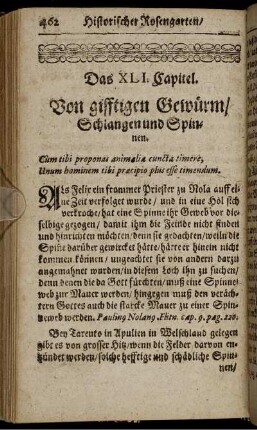 462 Historischer Rosengarten/
Das XLI. Capitel.
Von gifftigen Gewürm/
Schlangen und Spin-
nen.
Cùm tibi proponas animalia cuncta timere,
Unum hominem tibi præcipio plus esse timendum.
Als Felix ein frommer Priester zu Nola auff ei-
ne Zeit verfolget wurde / und in eine Höl sich
verkroche/hat eine Spinne ihr Geweb vor die-
selbige gezogen/ damit ihm die Feinde nicht finden
und hinrichten möchten/denn sie gedachten/weiln die
Spiñe darüber gewircket hätte/hätte er hinein nicht
kommen können/ ungeachtet sie von andern darzu
angemahnet wurden/in diesem Loch ihn zu suchen/
denn denen die da Gott fürchten/ muß eine Spinne-
web zur Mauer werden/ hingegen muß den veräch-
tern Gottes auch die starcke Mauer zu einer Spin-
neweb werden. Paulinq Nolang. cap. 9. pag. 220.
Bey Tarento in Apulien in Welschland gelegen
gibt es von grosser Hitz/wenn die Felder darvon en-
zündet werden/solche hefftige und schädliche Spin-
nen/